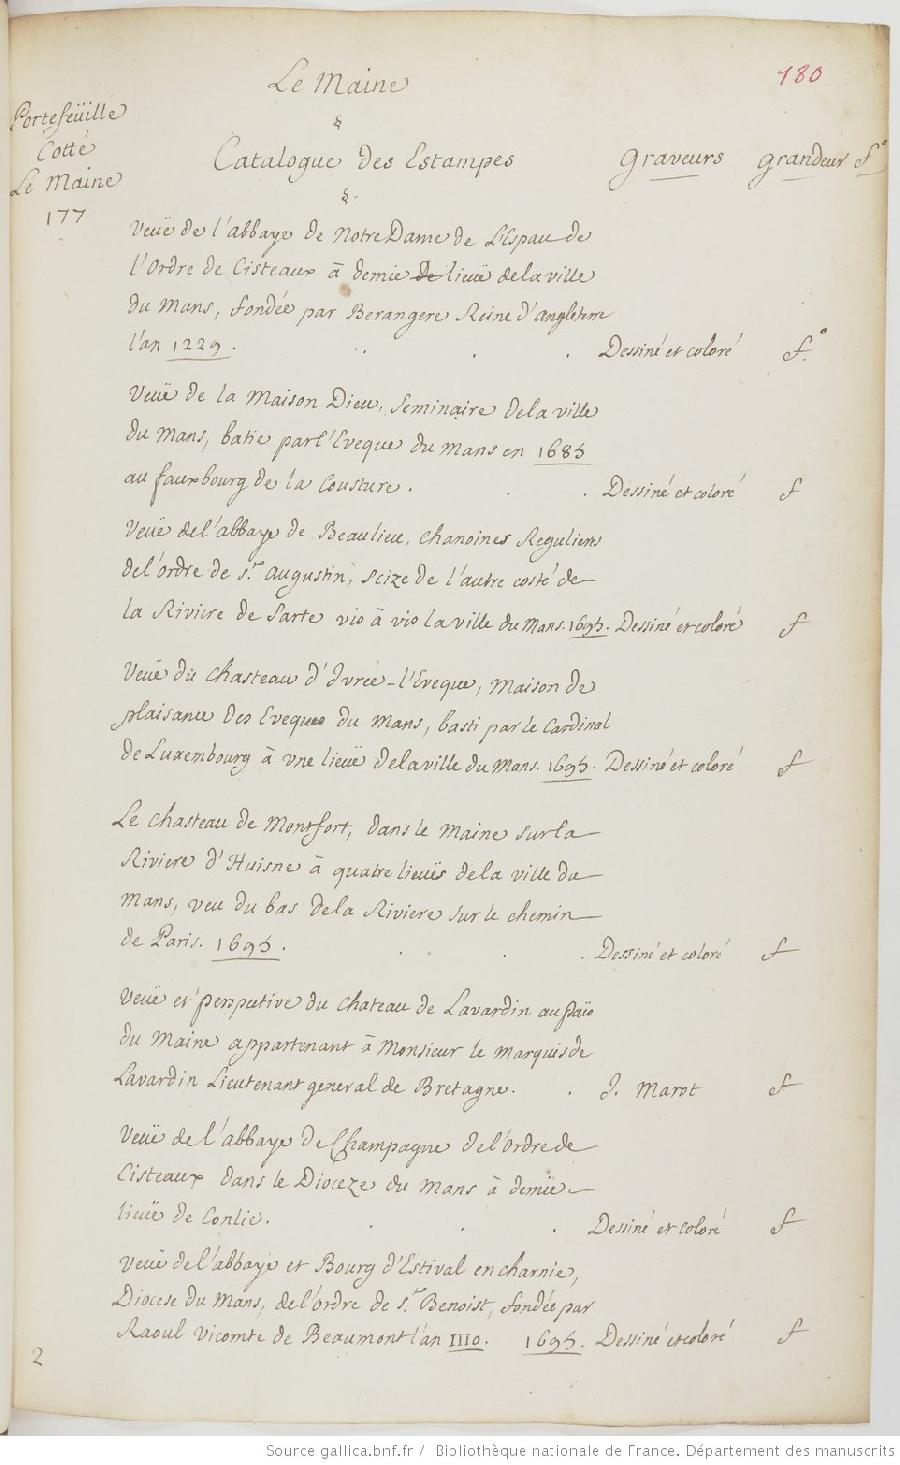 180
Le Maine
Portefeüille
Cotté
Le Maine
177
Catalogue des Estampes Graveurs grandeur f°
Veuë de l'abbaye de Notre Dame de L'Espau de
l'Ordre de Cisteaux à demie de lieuë de la ville
du Mans, fondée par Berangere Reine d'Angleterre
l'an 1229. Dessiné et coloré f.°
Veuë de la Maison Dieu, Seminaire de la ville
du Mans, batie par l'Eveque du Mans en 1685
au fauxbourg de la Cousture. Dessiné et coloré f
Veuë de l'abbaye de Beaulieu, chanoines Reguliers
de l'ordre de St. Augustin, scize de l'autre costé de
la Riviere de Sarte vis à vis la ville du Mans. 1695. Dessiné et coloré f
Veuë du chasteau d'Ivrée-l'Eveque, Maison de
plaisance des Eveques du Mans, basti par le Cardinal
de Luxembourg à une lieuë de la ville du Mans. 1695. Dessiné et coloré f
Le chasteau de Montfort, dans le Maine sur la
Riviere d'Huisne à quatre lieuës de la ville du
Mans, veu du bas de la Riviere sur le chemin
de Paris. 1695. Dessiné et coloré f
Veuë et perspective du chateau de Lavardin au païs
du Maine appartenant à Monsieur le Marquis de
Lavardin Lieutenant general de Bretagne. J. Marot f
Veuë de l'abbaye de Champagne de l'Ordre de
Cisteaux dans le Dioceze du Mans à demie
lieuë de Conlie. Dessiné et coloré f
Veuë de l'abbaye et Bourg d'Estival en charnie,
Diocese du Mans, de l'ordre de St. Benoist, fondée par
Raoul Vicomte de Beaumont l'an 1110. 1695. Dessiné et coloré f
2
Source gallica.bnf.fr / Bibliothèque nationale de France. Département des manuscrits